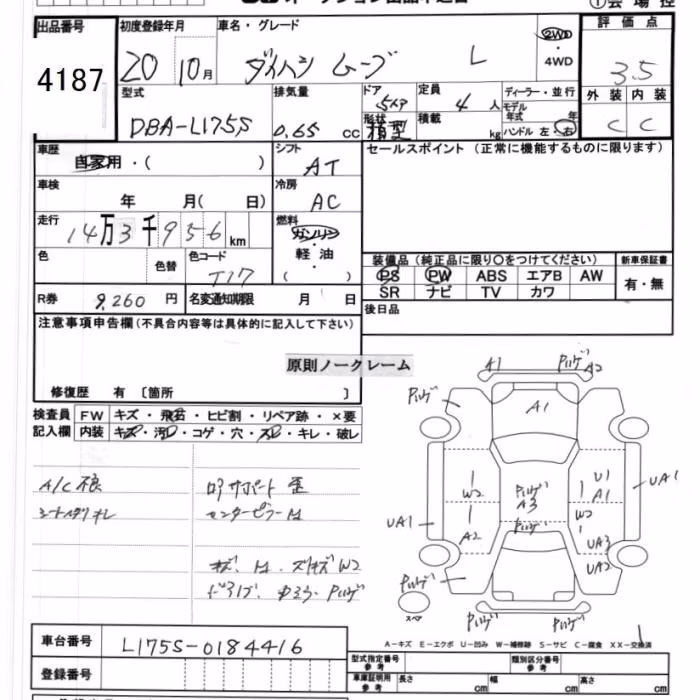 ①会場控
出品番号 4187
初度登録年月 20 10月
車名・グレード ダイハツ ムーブ L
2WD・4WD
評価点 3.5
外装 内装
C C
型式 DBA-L175S
排気量 0.65 cc
ドア 5ドア
形状 箱型
定員 4人
積載 kg
ディーラー・並行
モデル年式 年
ハンドル 左 右
車歴 自家用・( )
シフト AT
セールスポイント (正常に機能するものに限ります)
車検 年 月( 日)
冷房 AC
走行 14万3千956km
燃料 ガソリン・軽油・( )
色 色替
色コード T17
装備品(純正品に限り○をつけてください)
新車保証書
PS PW ABS エアB AW
SR ナビ TV カワ
有・無
R券 9,260円
名変通知期限 月 日
後日品
注意事項申告欄(不具合内容等は具体的に記入して下さい)
原則ノークレーム
修復歴 有 〔箇所 〕
検査員記入欄
FW キズ・飛石・ヒビ割・リペア跡・×要
内装 キズ・汚レ・コゲ・穴・スレ・キレ・破レ
A/C 
センターピラー
W2
A1 A2
A1
W2
A3
U1
A1
W2
UA1
UA1
A2
UA3
UA2
スペア
A-キズ E-エクボ U-凹み W-補修跡 S-サビ C-腐食 XX-交換済
車台番号 L175S-0184416
登録番号
型式指定番号 参考
類別区分番号 参考
車庫証明用 参考 長さ cm 幅 cm 高さ cm